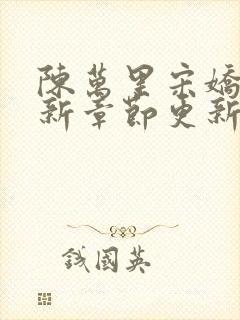 陳萬里宋嬌
新章節更新
錢國英